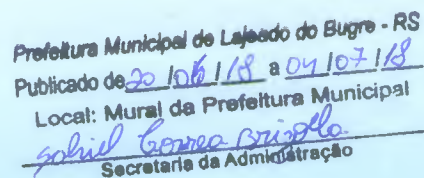 Prefeitura Municipal de Lajeado do Bugre - RS
Publicado de 20 / 06 / 18 a 04 / 07 / 18
Local: Mural da Prefeitura Municipal
Correa Brizolla
Secretaria da Administração